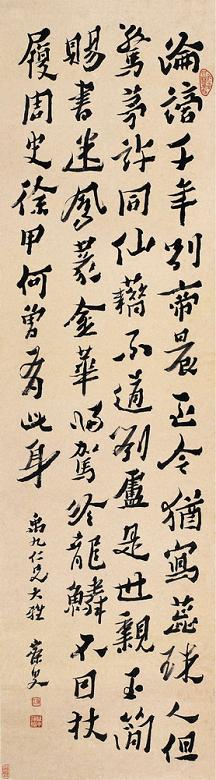 淪謫千年別帝晨至今猶寫蕊珠人但
驚茅許同仙籍不道劉盧是世親玉簡
賜書迷鳳篆金華歸駕冷龍鱗不因杖
履周史徐甲何曾有此身
禹九仁兄大雅 蝯叟